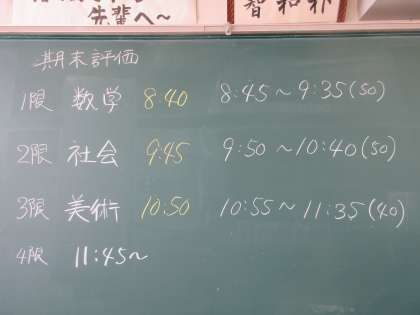 先輩へ〜
智和朴
期末評価
1限 数学 8:40 8:45〜9:35(50)
2限 社会 9:45 9:50〜10:40(50)
3限 美術 10:50 10:55〜11:35(40)
4限 11:45〜